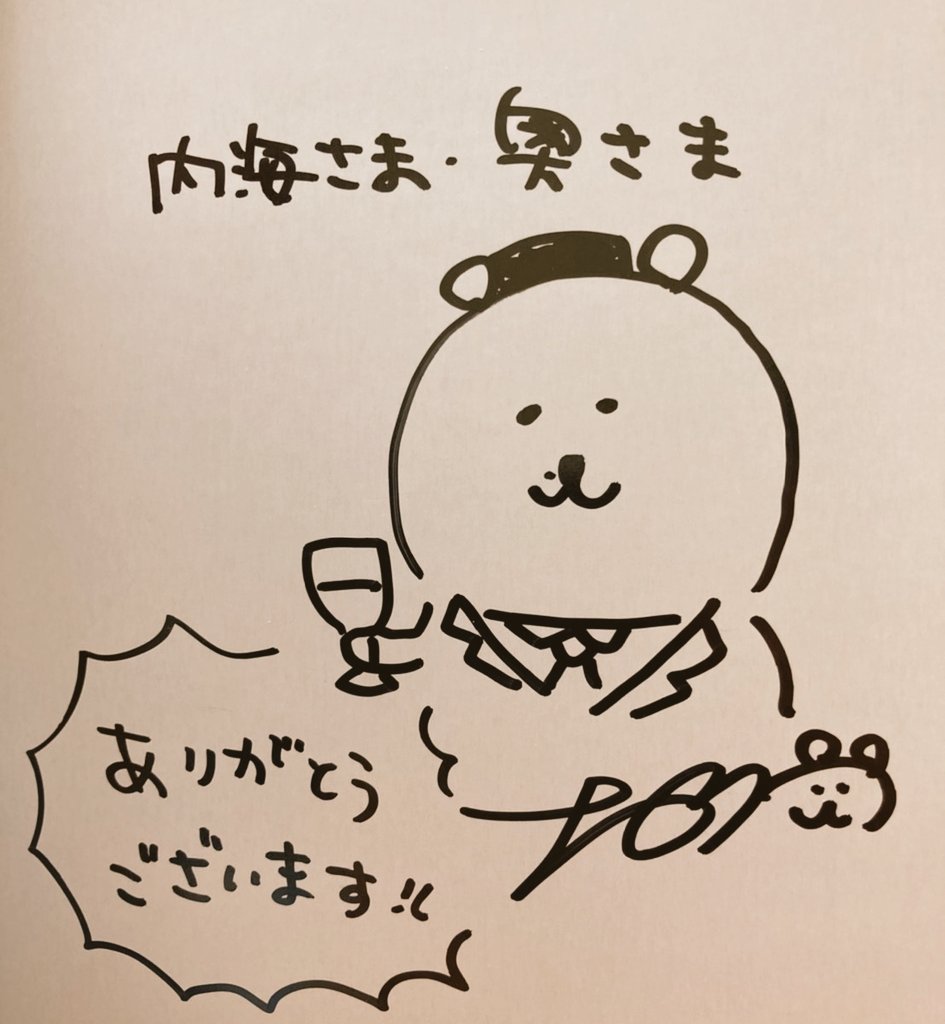 内海さま・奥さま
ありがとう
ございます!!